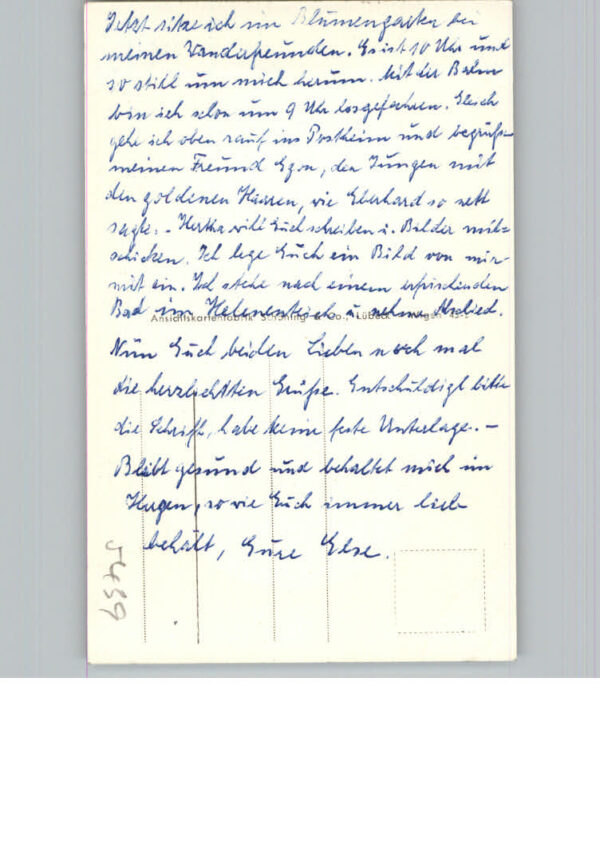 Jetzt sitze ich im Blumengarten bei
meinen Wanderfreunden. Es ist 10 Uhr und
so still um mich herum. Mit der Bahn
bin ich schon um 9 Uhr losgefahren. Gleich
gehe ich oben rauf ins Postheim und begrüße
meinen Freund Egon, den Jungen mit
den goldenen Haaren, wie Eberhard so nett
sagte. - Hertha will Euch schreiben u. Bilder mit=
schicken. Ich lege Euch ein Bild von mir
mit ein. Ich stehe nach einem erfrischenden
Bad im Helenenteich u. nehme Abschied.
Ansichtskartenfabrik Schöning & Co., Lübeck
Nun Euch beiden Lieben noch mal
die herzlichsten Grüße. Entschuldigt bitte
die Schrift, habe keine feste Unterlage. -
Bleibt gesund und behaltet mich im
Augen, so wie Euch immer lieb
behält, Eure Else.
5489